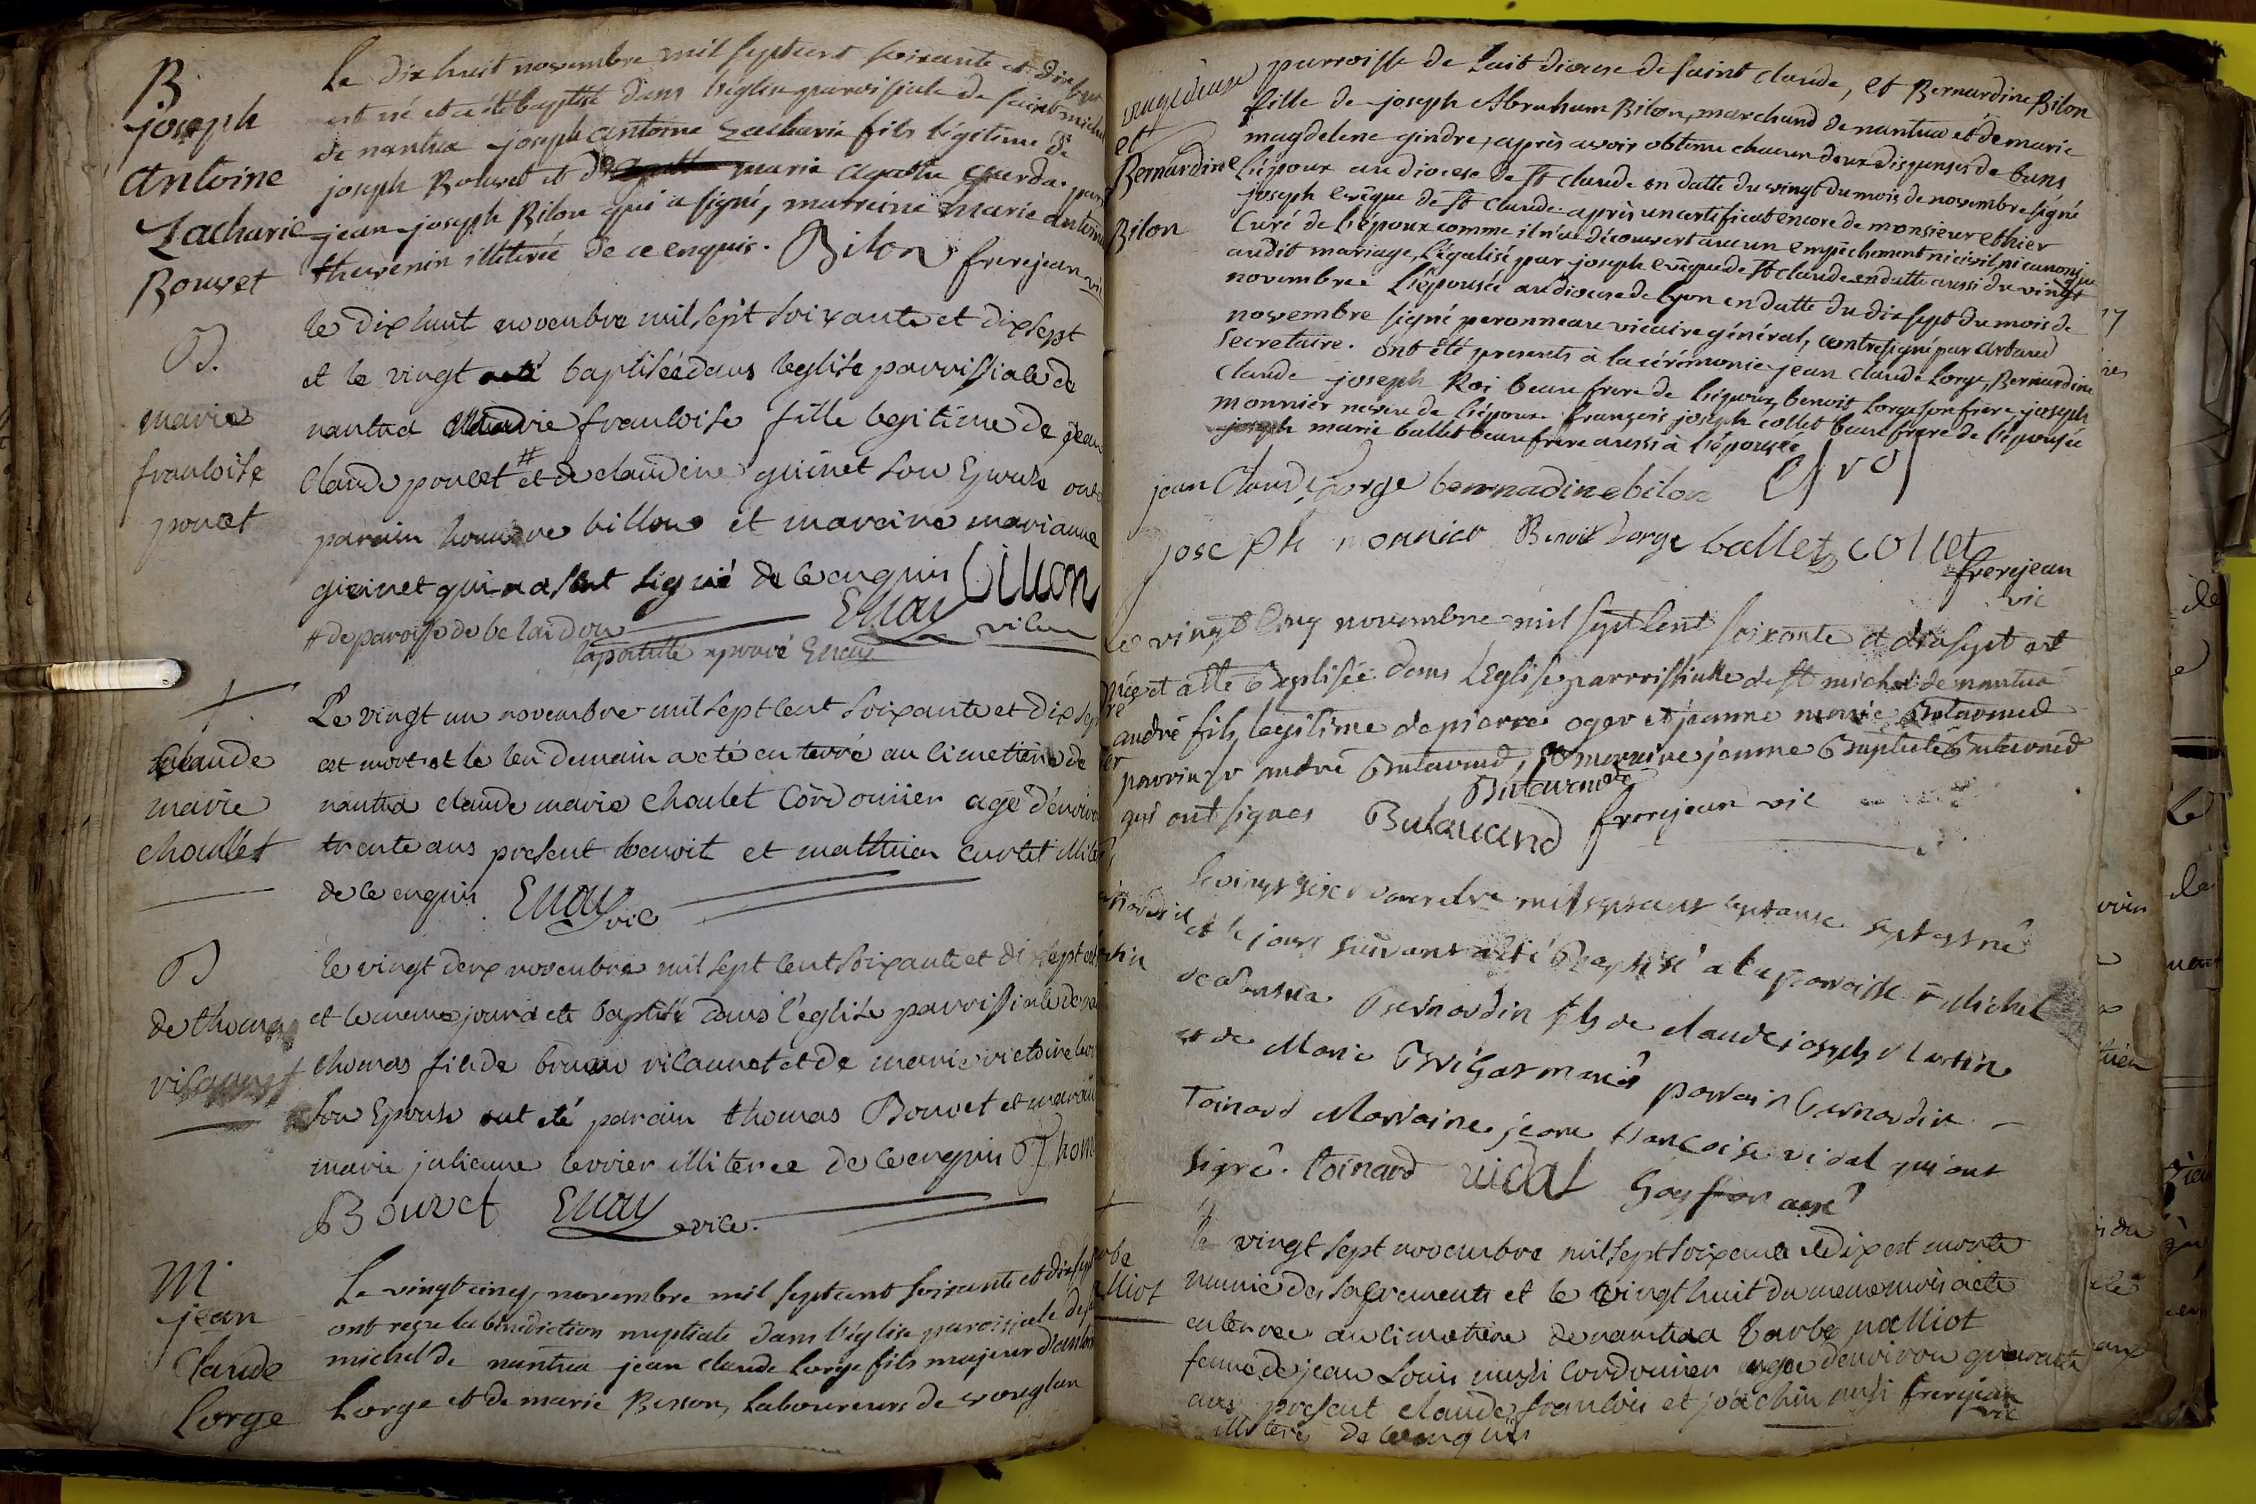 B
joseph
antoine
Zacharie
Bouvet
le dix huit novembre mil sept cent soixante et dix sept
est né et a été baptisé dans l'église paroissiale de saint michel
de nantua joseph antoine zacharie fils légitime de
joseph Bouvet et de marie agathe
jean joseph Bilon qui a signé, marraine marie antoine
thevenin illiterée de ce enquis. Bilon frerejean vic
B.
marie
francoise
poncet
le dix huit novembre mil sept soixante et dix sept
et le vingt a été baptisée dans leglise parroissiale de
nantua marie francoise fille legitime de jean
claude poncet # et de claudine guinet son Epouse ont
parain homme billon et mareine marianne
guinet qui n a signé de ce enquis billon
# de paroisse de be laidou
Evray vic
lapostille aprouvé Evray
+
claude
marie
choullet
Le vingt un novembre mil sept cent soixante et dix sept
est mort et le lendemain a été enterré au cimetiere de
nantua claude marie choulet Cordonnier agé d'environ
trente ans present benoit et mathieu curtet illiter
de ce enquis Evray vic
B
de thomas
vilaunet
le vingt deux novembre mil sept cent soixante et dix sept est
et le meme jour a ete baptisé dans l'église parroissiale de na
thomas fils de bruno vilaunet et de marie victoire
son Epouse ont été parain thomas Bouvet et marain
marie julienne levrier illiteree de ce enquis Thom
Bouvet Evray vic.
M.
jean
Claude
Lorge
Le vingt cinq, novembre mil sept cent soixante et dix sept
ont reçu la bénédiction nuptiale dans l'église paroissiale de st
michel de nantua jean claude Lorge fils majeur d'antoi
Lorge et de marie Besson, Laboureurs de vouglan
et
Bernardine
Bilon
parroisse de Lait diocese de saint claude, et Bernardine Bilon
fille de joseph Abraham Bilon, marchand de nantua et de marie
magdelene gindre, après avoir obtenu chacun deux dispenses de bans
L'époux au diocese de st claude en datte du vingt du mois de novembre signé
joseph evêque de st claude après un certificat encore de monsieur ethier
Curé de l'époux comme il n'a découvert aucun empêchement ni civil ni canonique
audit mariage, légalisé par joseph evêque de st claude en datte aussi du vingt
novembre. L'épousée au diocese de lyon en datte du dix sept du mois de
novembre signé peronneau vicaire général, contresigné par artaud
secretaire. ont été presents à la cérémonie jean claude Lorge, Bernardine
claude joseph Roi beau frere de l'époux, benoit Lorge son frère, joseph
monnier neveu de l'époux. françois joseph collet beau frere de l'épousée
joseph marie ballet beau frere aussi à l'épousée
jean Claude Lorge bernnadine bilon
joseph monnier Benoit Lorge ballet collet
frerejean
vic
Le vingt cinq novembre mil sept cent soixante et dix sept est
né et a été Baptisée dans L'Eglise parroissialle de st michel de nantua
andré fils legitime de pierre oger et jeanne marie Butavand
parrin sr andré Butavand, et marraine jeanne Baptiste Butavand
qui ont signés Butavand Butavand frerejean vic
le vingt six novembre mil sept cent septante sept est né
et le jour suivant a été Baptisé a la parroisse st Michel
de nantua Bernardin fils de claude joseph Martin
et de Marie parrain Bernardin
Toinard Marraine jeane françoise vidal qui ont
signé. toinard vidal
+
le vingt sept novembre mil sept soixante et dix est morte
munie des sacrements et le vingt huit du meme mois a ete
enterree au cimetiere de nantua barbe palliot
femme de jean Louis cordonier agee d'environ quarante
ans present claude francois et joachim frerejean
vic
illiteres de ce enquis